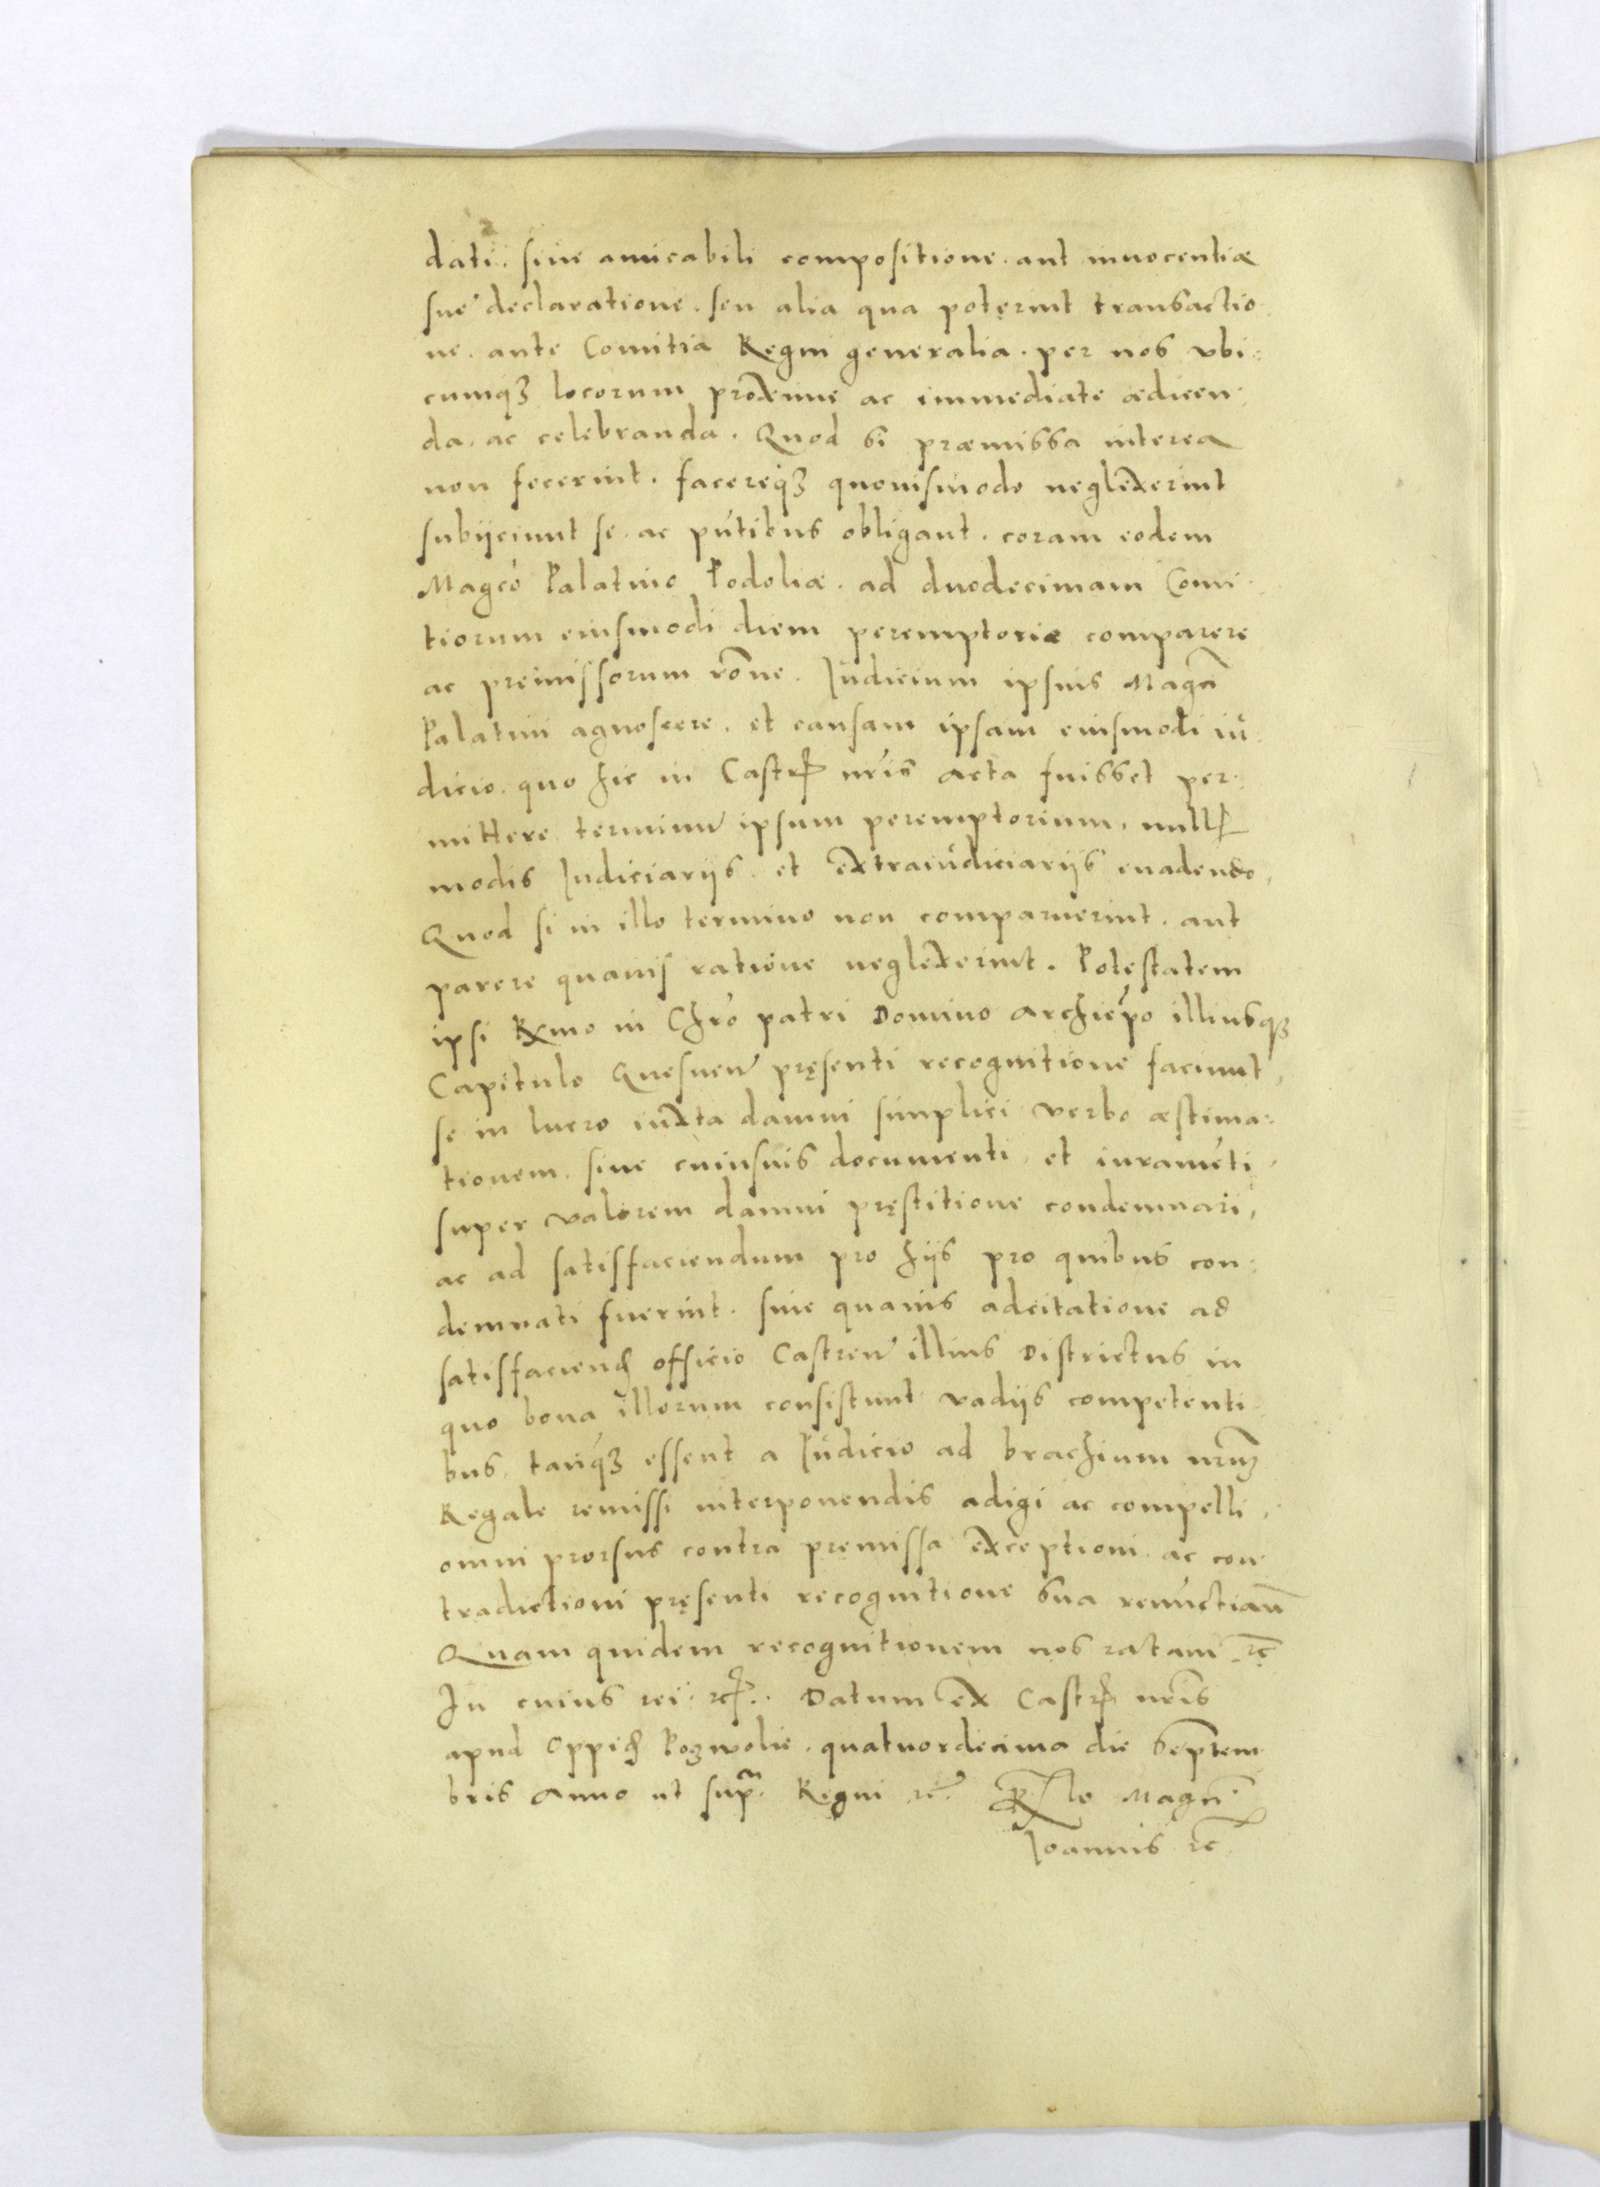 dati. siue amicabili compositione. aut innocentiæ
sue declaratione. seu alia qua potęrint transactio
ne. ante Comitia Regni generalia. per nos vbi:
cumqꝫ locorum proxime ac immediate ædicen:
da. ac celebranda. Quod si præmissa interea
non fecerint. facereqꝫ quouismodo neglexerint
subijciunt se. ac pńtibus obligant. coram eodem
Magco Palatino Podoliæ. ad duodecimam Comi:
tiorum eiusmodi diem peremptoriæ comparere
ac pręmissorum rōne. Iudicium ipsius Magci
Palatini agnoscere. et causam ipsam eiusmodi iu:
dicio. quo hic in Castrꝭ nr̄is acta fuisset per:
mittere terminū ipsum peremptorium, nullꝭ
modis Iudiciarijs. et extraiudiciarijs euadendo,
Quod si in illo termino non comparuerint. aut
parere quauis ratione neglexerint. Potęstatem
ipsi Rx̄mo in Chr̄o patri Domino Archiep̄o illiusqꝫ
Capitulo Gnesneń pręsenti recognitione faciunt,
se in lucro iuxta damni simplici verbo æstima:
tionem. siue cuiusuis documenti et iuramēti
super valorem damni pręstitione condemnari,
ac ad satisfaciendum pro hijs pro quibus con:
demnati fuerint. siue quauis adcitatione ad
satisfaciend officio Castreń illius Districtus in
quo bona illorum consistunt vadijs competenti
bus, tanqꝫ essent a Iudicio ad brachium nr̄uꝫ
Regale remissi interponendis adigi ac compelli,
omni prorsus contra pręmissa exceptioni. ac con
tradictioni pręsenti recognitione sua renūctiań
Quam quidem recognitionem nos ratam ꝛc
In cuius rei ꝛcꝭ.. Datum ex Castrꝭ nr̄is
apud Oppid Pozwolie. quatuordecima die Septem
bris Anno ut sup̄. Regni ꝛc̄. Rlo Magń.
Ioannis ꝛc